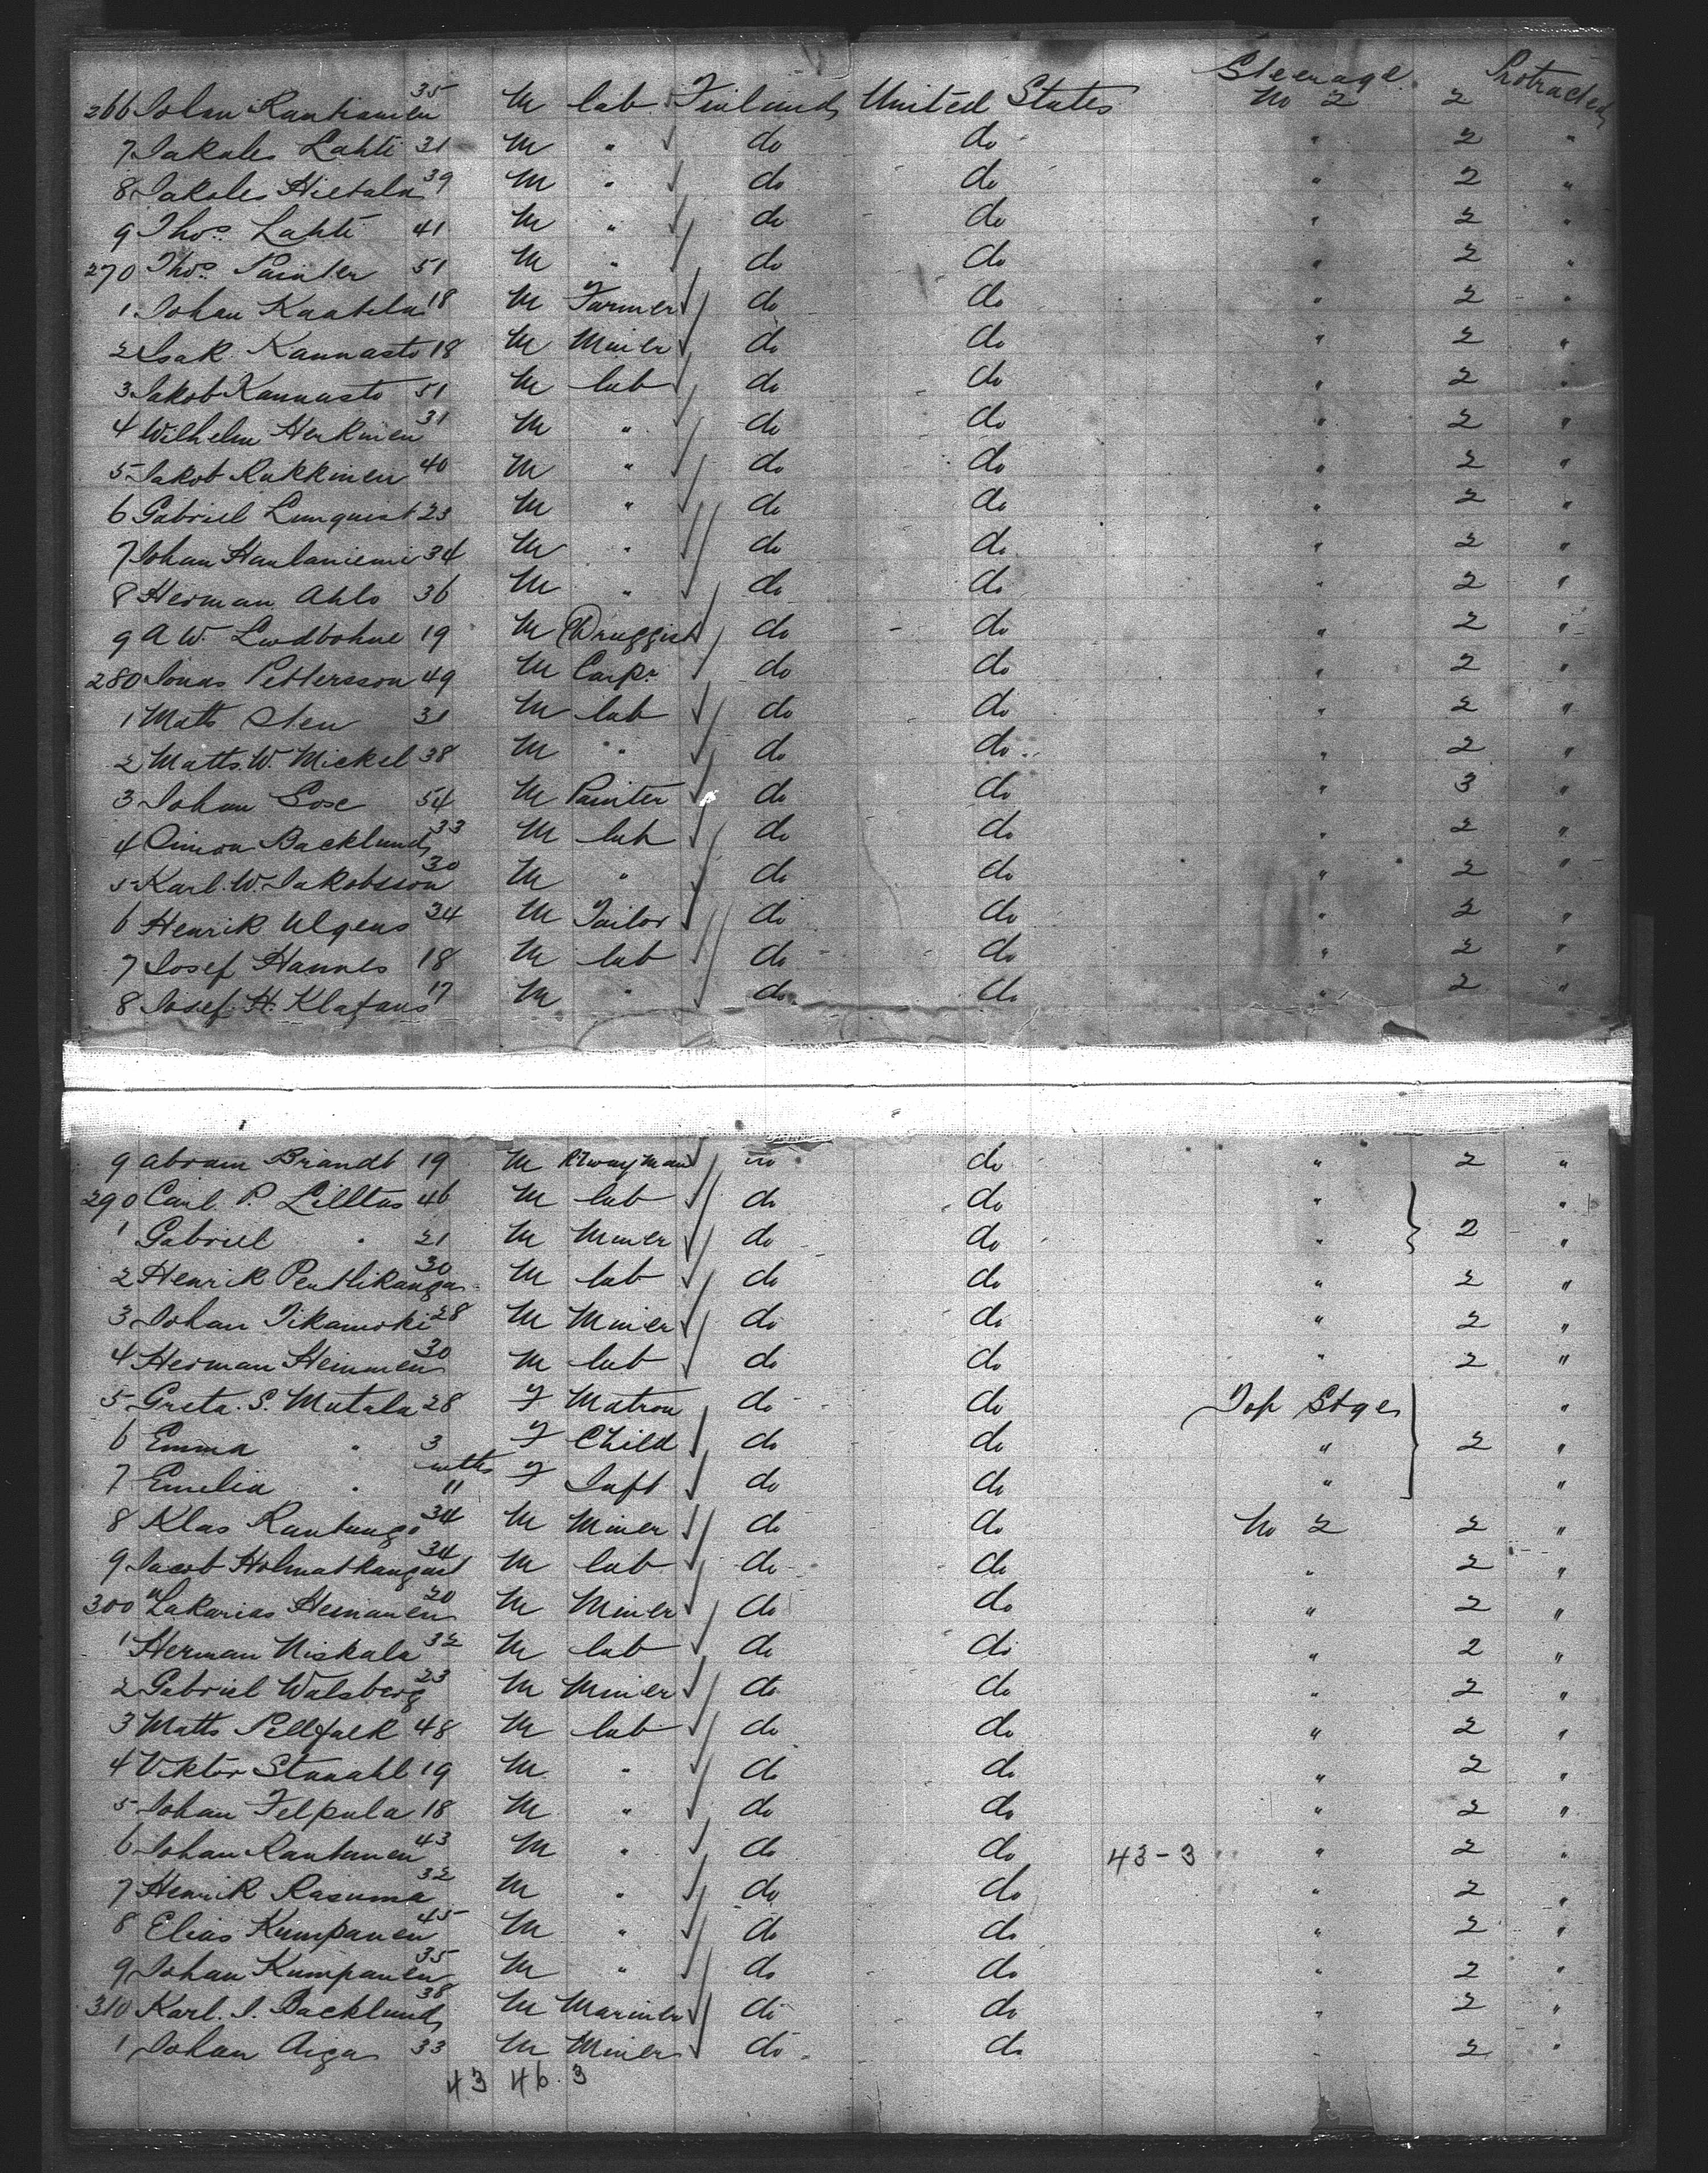 Steerage Protracted
266 Johan Rantianen 35 M lab Finland United States No 2 2
7 Jakob Lahti 31 M " do do " 2 "
8 Jakob Hietala 39 M " do do " 2 "
9 Thos. Lahti 41 M " do do " 2 "
270 Thos. Painter 51 M " do do " 2 "
1 Johan Kaatila 18 M Farmer do do " 2 "
2 Isak Kannasto 18 M Miner do do " 2 "
3 Jakob Kannasto 51 M lab do do " 2 "
4 Wilhelm Herkinen 31 M " do do " 2 "
5 Jakob Rukkinen 40 M " do do " 2 "
6 Gabriel Lunquist 23 M " do do " 2 "
7 Johan Hanlaniemi 34 M " do do " 2 "
8 Herman Ahlo 36 M " do do " 2 "
9 A W. 19 M Druggist do do " 2 "
280 Jonas Pettersson 49 M Carpr do do " 2 "
1 Matts Sten 31 M lab do do " 2 "
2 Matts. W. Mickel 38 M " do do " 2 "
3 Johan 54 M Painter do do " 3 "
4 Simon Backlund 33 M lab do do " 2 "
5 Karl. W. Jakobsson 30 M " do do " 2 "
6 Henrik Algens 34 M Tailor do do " 2 "
7 Josef Hannes 18 M lab do do " 2 "
8 Josef. H. Klafaus 17 M " do do " 2 "
9 Abram Brandt 19 M Rlwayman do do " 2 "
290 Carl. P. Lilltas 46 M lab do do " "
1 Gabriel " 21 M Miner do do " 2 "
2 Henrik Penttikangas 30 M lab do do " 2 "
3 Johan Tikamoki 28 M Miner do do " 2 "
4 Herman Heinmen 30 M lab do do " 2 "
5 Greta. S. Mutala 28 F Matron do do Top Stge "
6 Emma " 3 F Child do do " 2 "
7 Emelia " mths 11 F Inft do do " "
8 Klas Rantung 34 M Miner do do No 2 2 "
9 Jacob Holmatkangas 34 M lab do do " 2 "
300 Zakarias Heinanen 20 M Miner do do " 2 "
1 Herman Niskala 32 M lab do do " 2 "
2 Gabriel Walsberg 23 M Miner do do " 2 "
3 Matts Pellfalk 48 M lab do do " 2 "
4 Viktor Stanahl 19 M " do do " 2 "
5 Johan Felpula 18 M " do do " 2 "
6 Johan Rantanen 43 M " do do 43-3 " 2 "
7 Henrik Rasuma 32 M " do do " 2 "
8 Elias Kumpanen 45 M " do do " 2 "
9 Johan Kumpanen 35 M " do do " 2 "
310 Karl. J. Backlund 38 M Mariner do do " 2 "
1 Johan Aiga 33 M Miner do do " 2 "
43 46 3